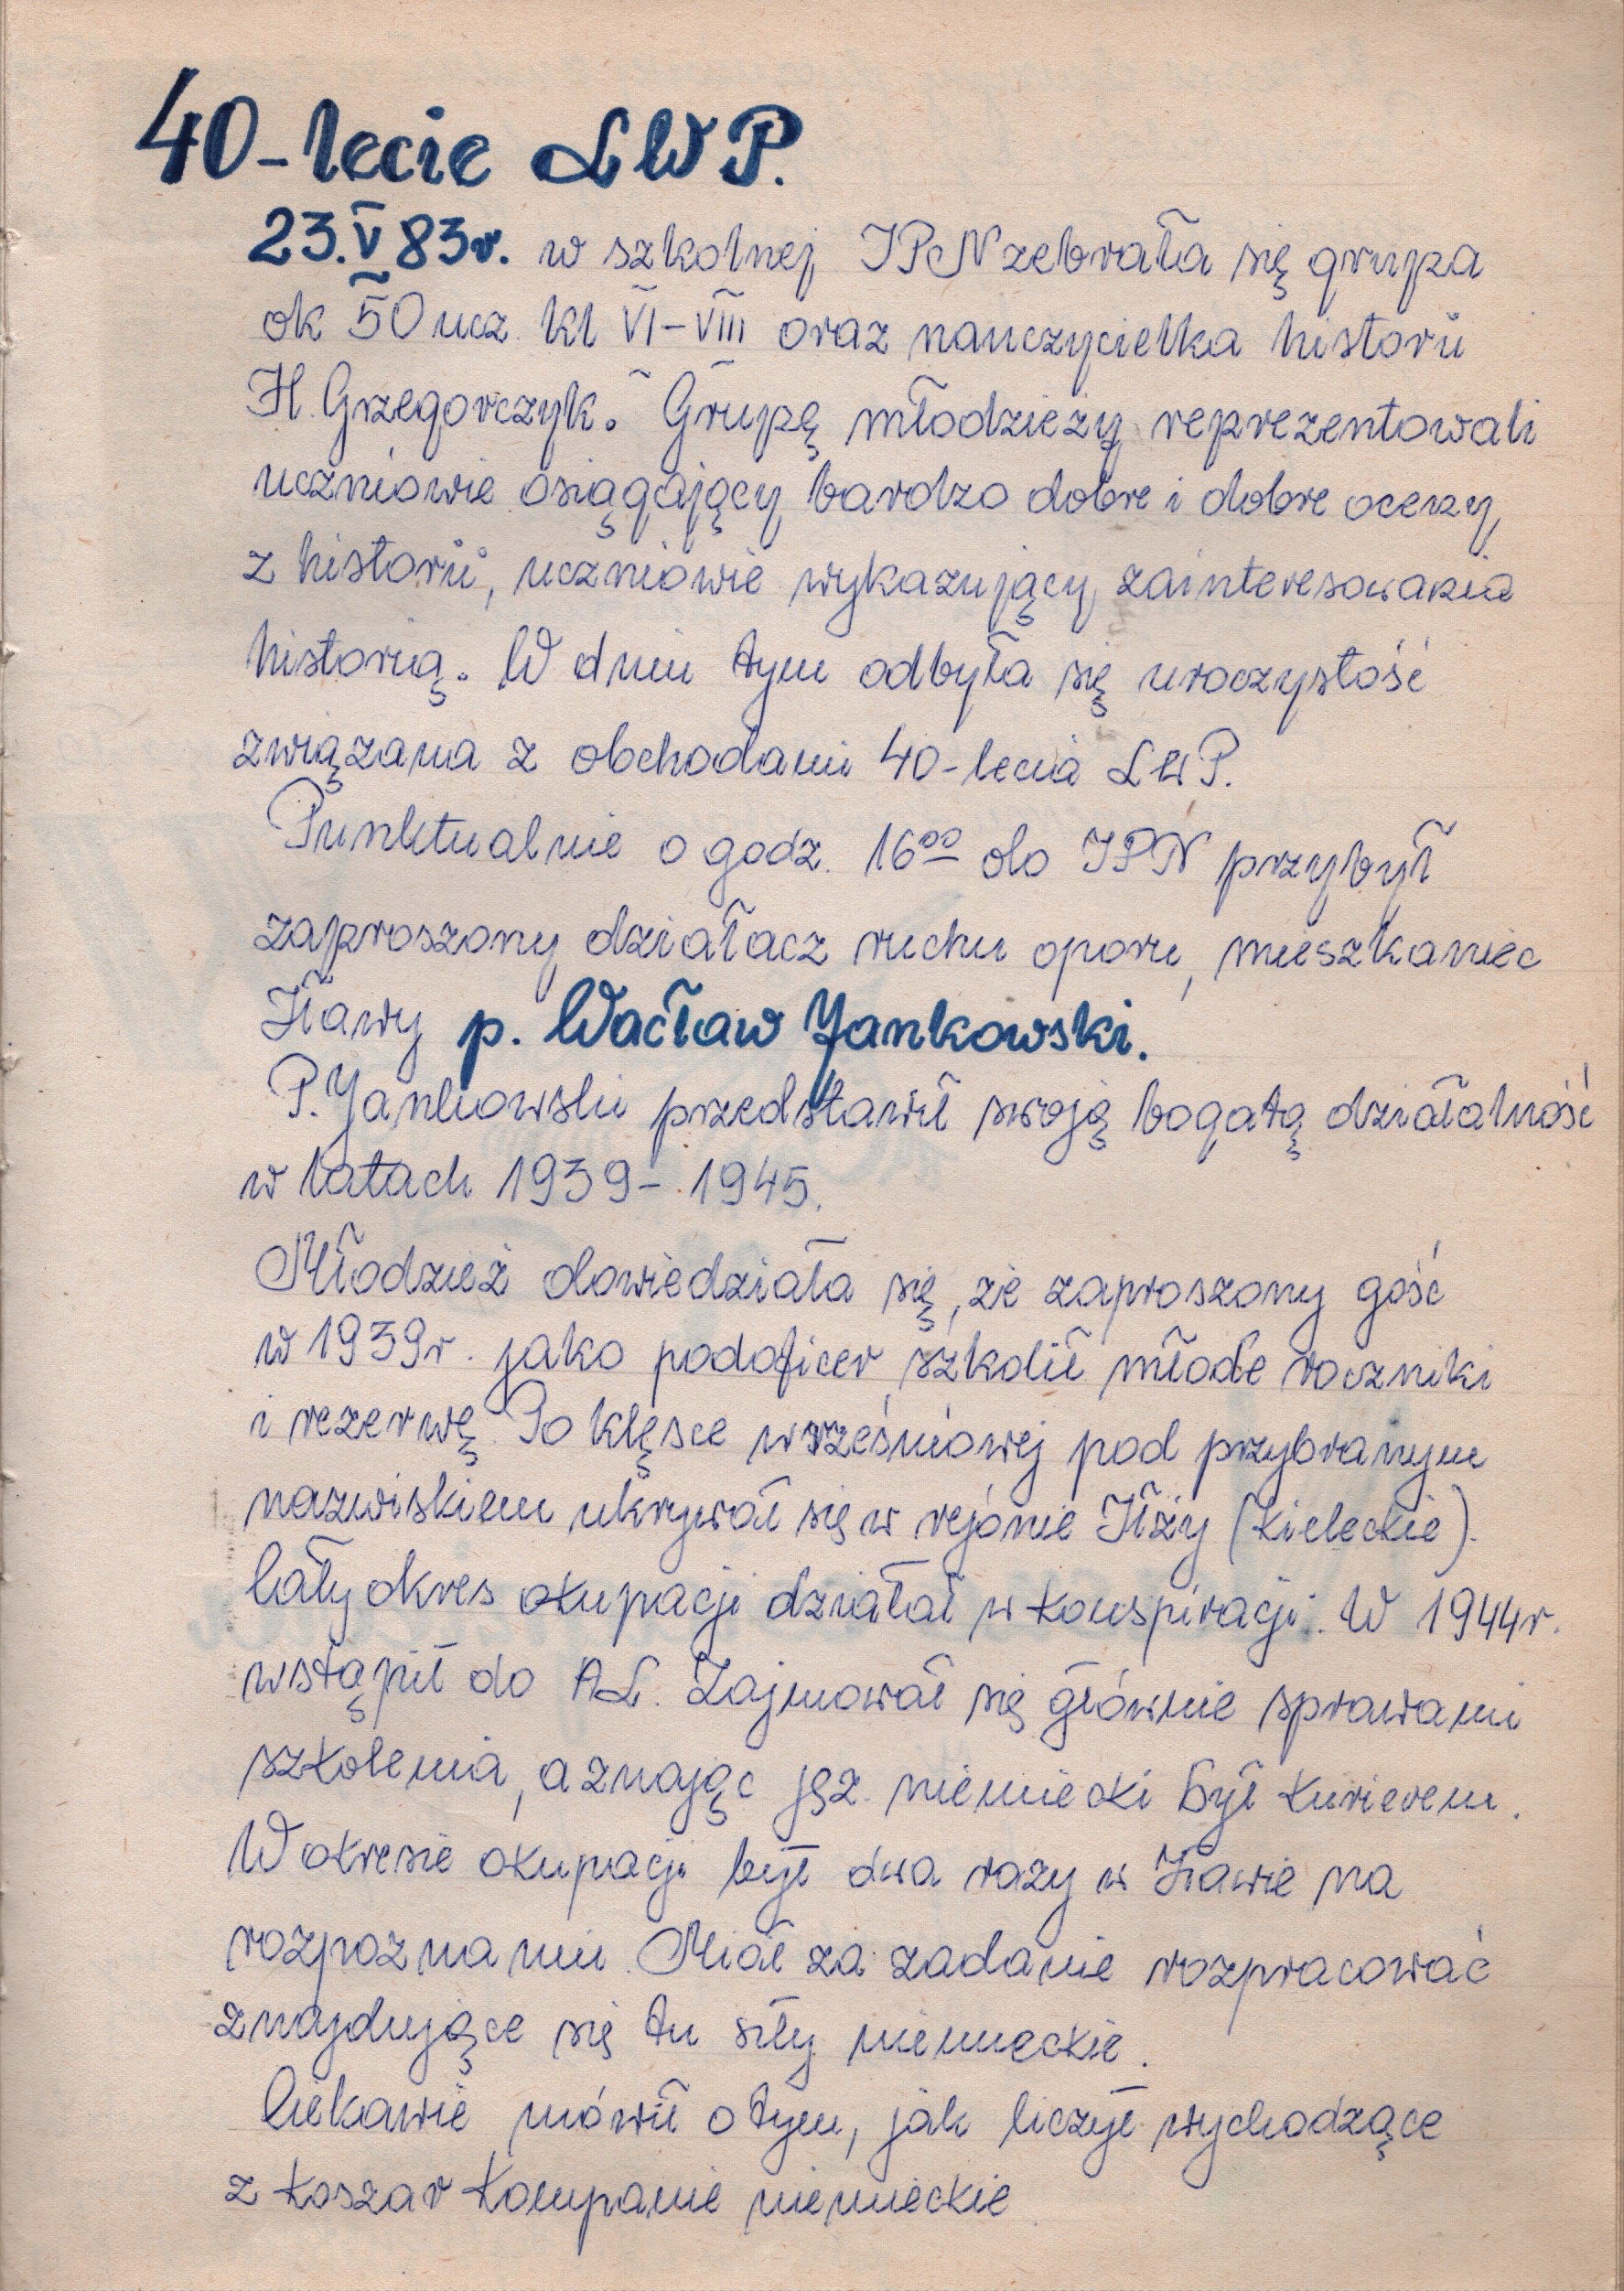 40-lecie LWP.
23.V 83r. w szkolnej IPN zebrała się grupa
ok 50 ucz. kl VI-VIII oraz nauczycielka historii
H. Grzegorczyk. Grupę młodzieży reprezentowali
uczniowie osiągający bardzo dobre i dobre oceny
z historii, uczniowie wykazujący zainteresowania
historią. W dniu tym odbyła się uroczystość
związana z obchodami 40-lecia LWP.
Punktualnie o godz. 16⁰⁰ do IPN przybył
zaproszony działacz ruchu oporu, mieszkaniec
Iławy p. Wacław Jankowski.
P. Jankowski przedstawił swoją bogatą działalność
w latach 1939-1945.
Młodzież dowiedziała się, że zaproszony gość
w 1939r. jako podoficer szkolił młode roczniki
i rezerwę. Po klęsce wrześniowej pod przybranym
nazwiskiem ukrywał się w rejonie Iłży (kieleckie).
Cały okres okupacji działał w konspiracji. W 1944r.
wstąpił do AL. Zajmował się głównie sprawami
szkolenia, a znając jęz. niemiecki był kurierem.
W okresie okupacji był dwa razy w Iławie na
rozpoznaniu. Miał za zadanie rozpracować
znajdujące się tu siły niemieckie.
Ciekawie mówił o tym, jak liczył wychodzące
z koszar kompanie niemieckie